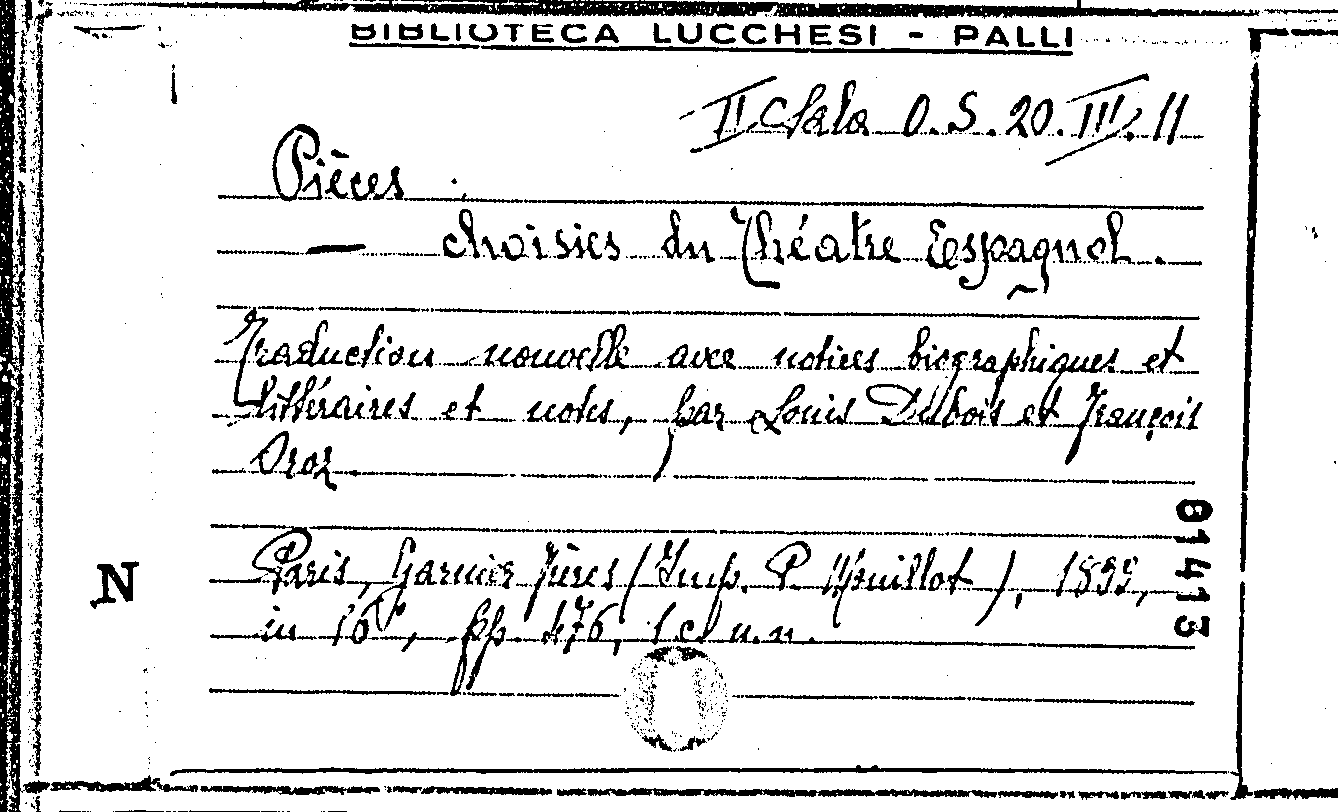 BIBLIOTECA LUCCHESI - PALLI
II Sala O.S. 20. III. 11
Pièces
— choisies du Théatre Espagnol.
Traduction nouvelle avec notices biographiques et
littéraires et notes, par Louis Dubois et François
Oroz
Paris, Garnier Frères (Imp. P. Mouillot),
in 16°, pp. 476, 1 c. n.n.
N
81413